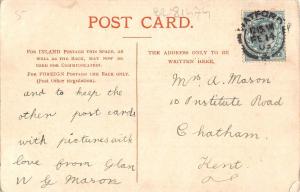 5
POST CARD.
FOR INLAND POSTAGE THIS SPACE, AS
WELL AS THE BACK, MAY NOW BE
USED FOR COMMUNICATION.
FOR FOREIGN POSTAGE THE BACK ONLY.
(Post Office Regulation).
THE ADDRESS ONLY TO BE
WRITTEN HERE.
and to keep the
other post cards
with pictures with
love from Glan
W G Mason
Mrs A. Mason
10 Institute Road
Chatham.
Kent.